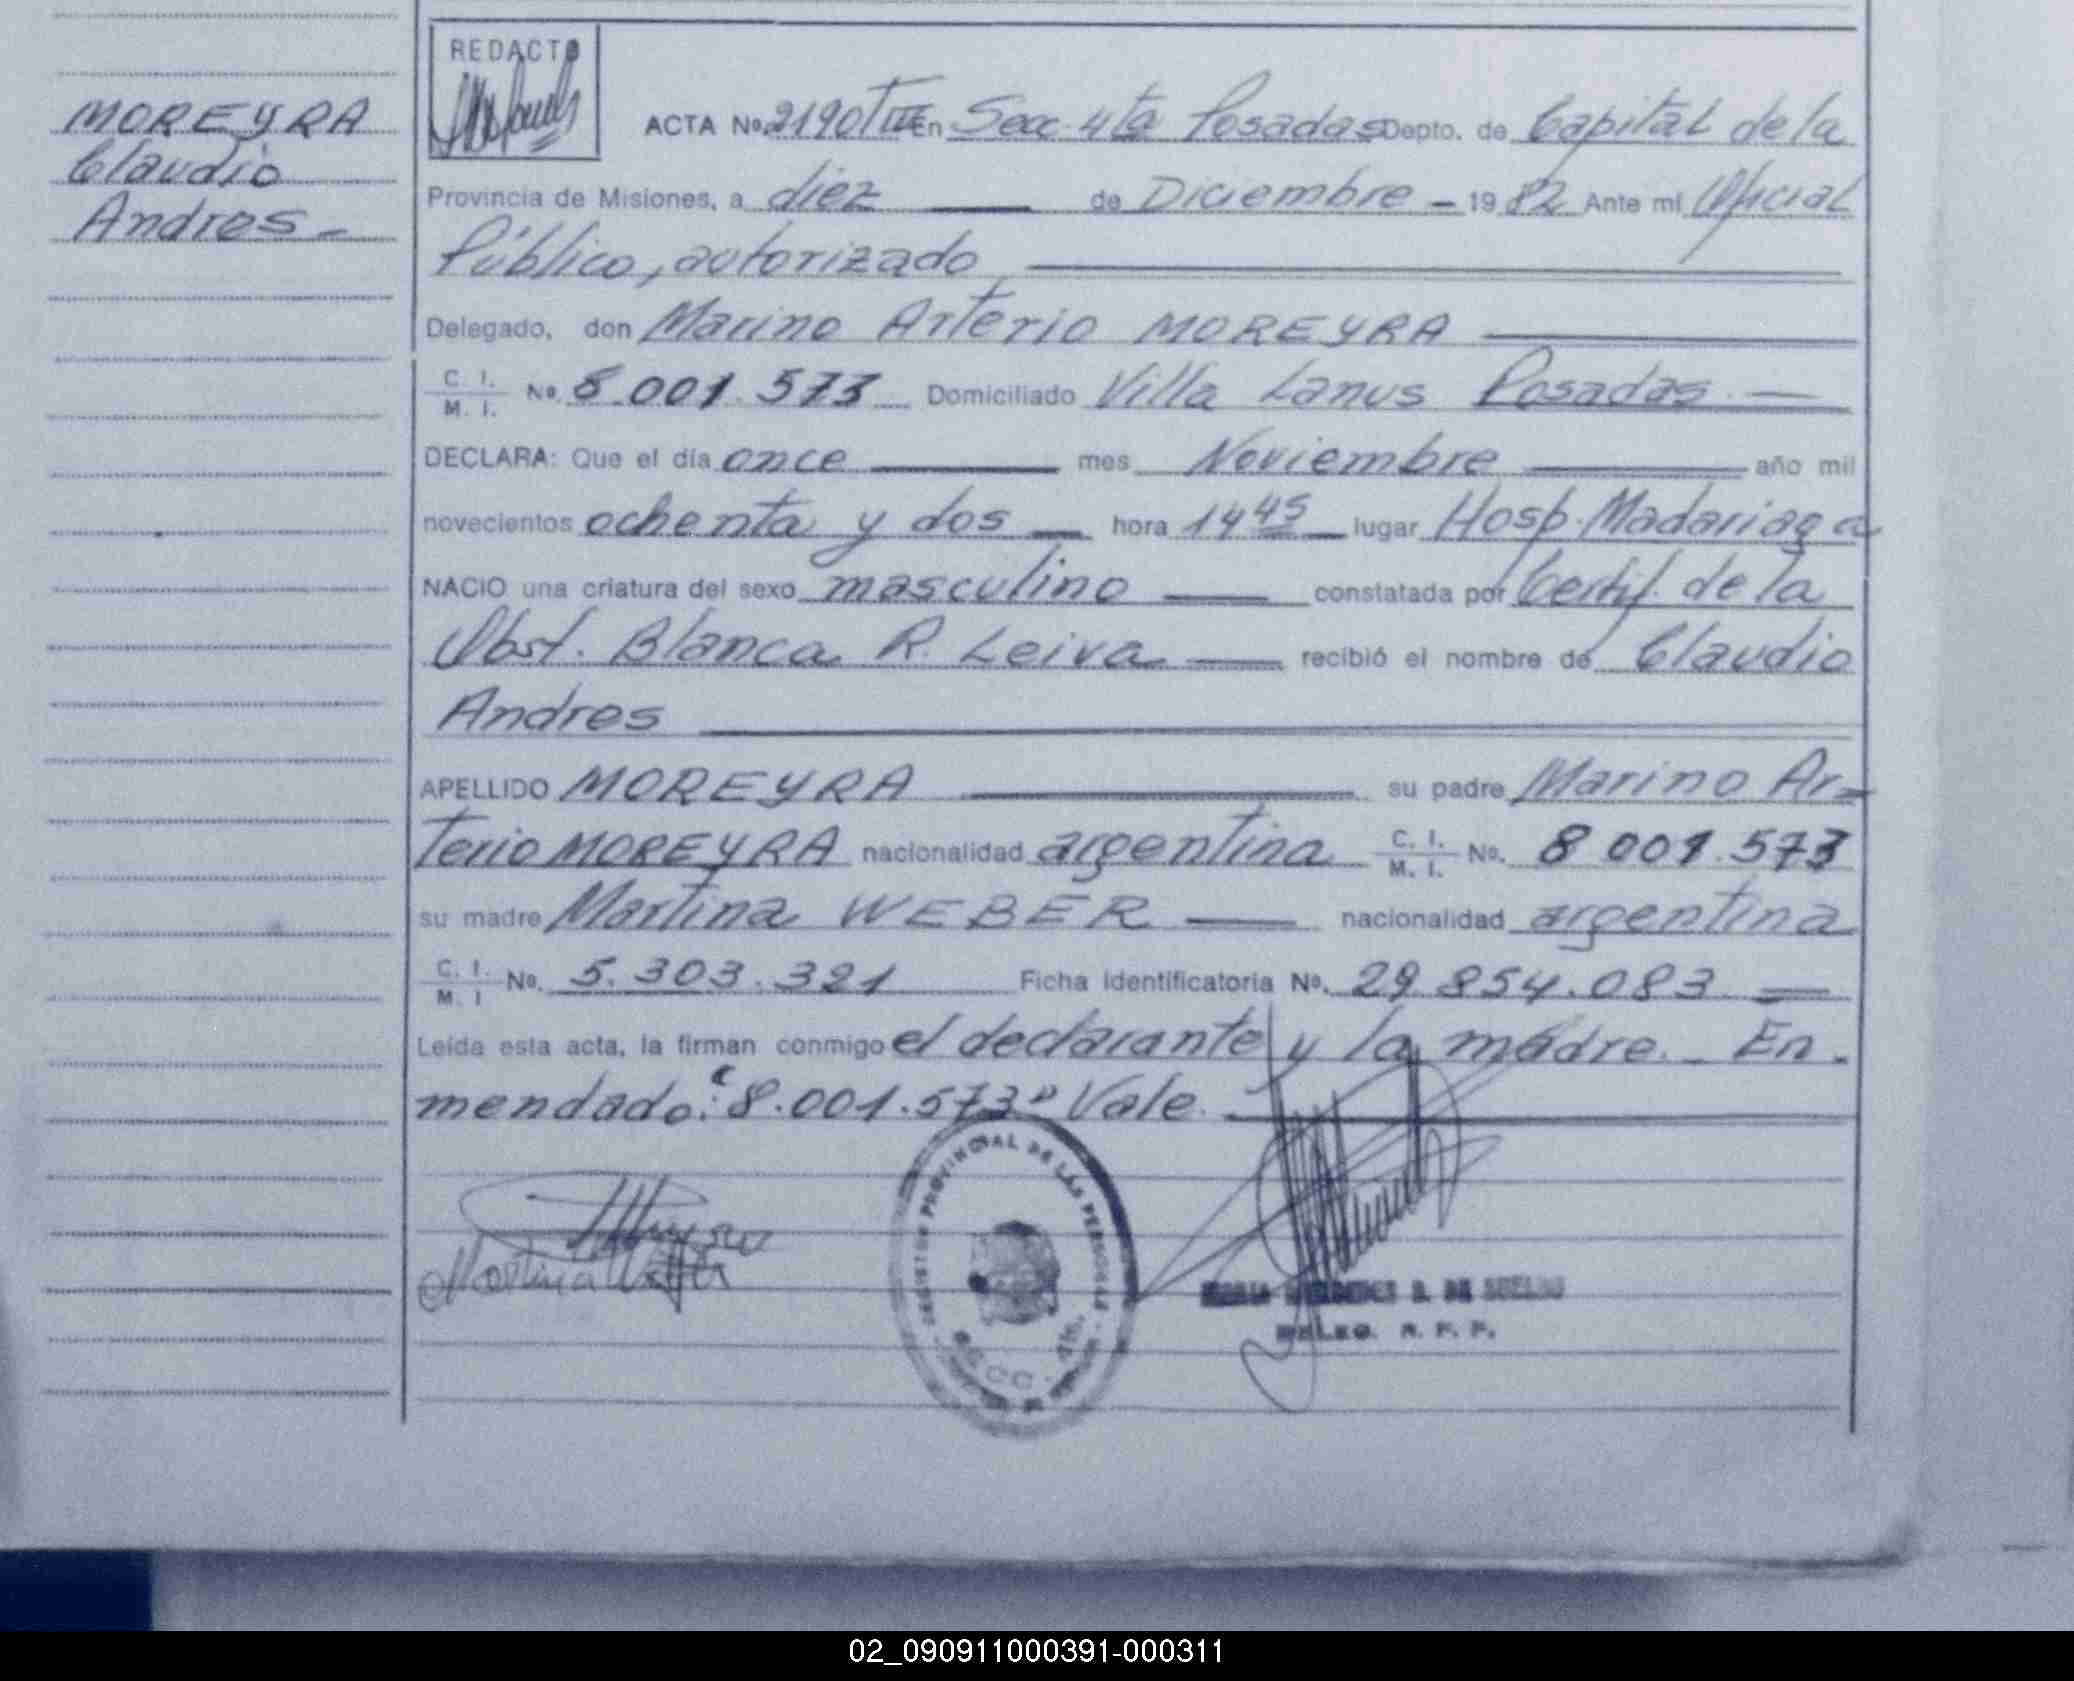 MOREYRA
Claudio
Andres -
REDACTO
ACTA No. 2190 T III En Secc. 4ta Posadas Depto. de Capital de la
Provincia de Misiones, a diez de Diciembre - 1982 Ante mi Oficial
Público, autorizado
Delegado, don Marino Arterio MOREYRA
C. I. / M. I. No. 8.001.573 Domiciliado Villa Lanus Posadas. -
DECLARA: Que el día once mes Noviembre año mil
novecientos ochenta y dos hora 14 45 lugar Hosp. Madariaga
NACIO una criatura del sexo masculino constatada por Certif. de la
Obst. Blanca R. Leiva recibió el nombre de Claudio
Andres
APELLIDO MOREYRA su padre Marino Ar-
terio MOREYRA nacionalidad argentina C. I. / M. I. No. 8 001.573
su madre Martina WEBER nacionalidad argentina
C. I. / M. I No. 5.303.321 Ficha Identificatoria No. 29.854.083
Leída esta acta, la firman conmigo el declarante y la madre. - En-
mendado: "8.001.573" Vale.
Martina Weber
REGISTRO PROVINCIAL DE LAS PERSONAS
SECC. 4ta.
DE
DELEG. R. P. P.
02_090911000391-000311